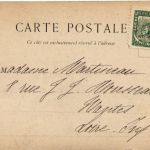 CARTE POSTALE
Ce côté est exclusivement réservé à l'adresse
Madame Martineau
8 rue J. J. Rousseau
Nantes
Loire Inf